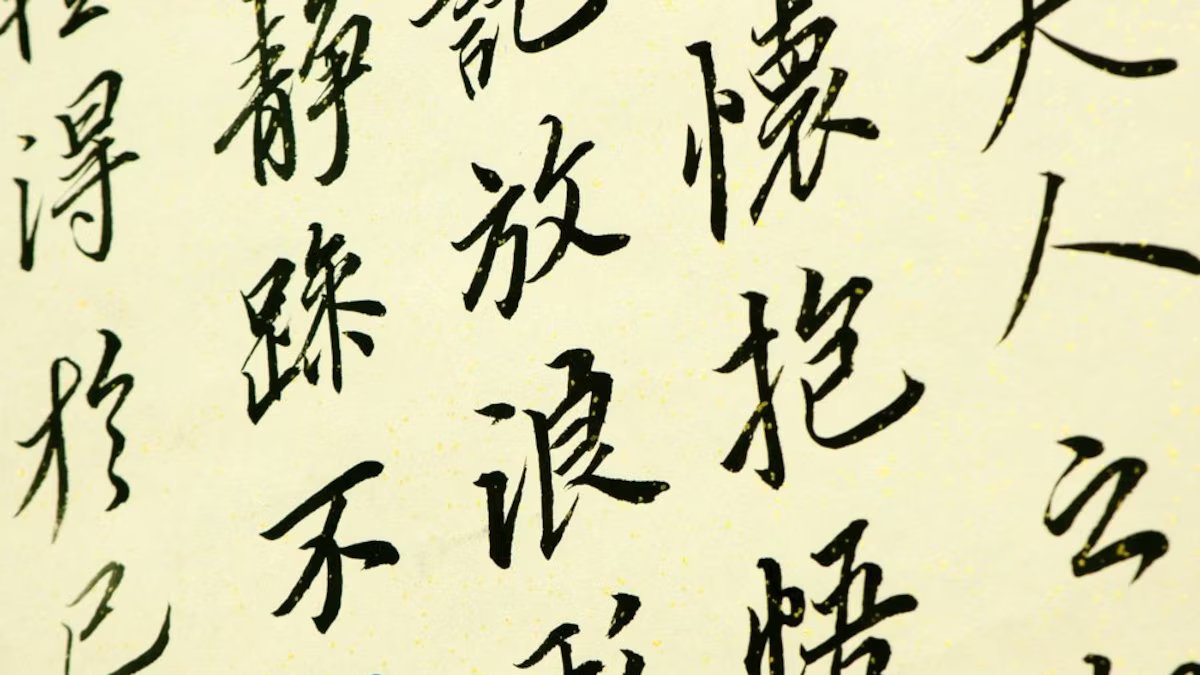 夫人之
懷抱悟
託放浪形
靜躁不
得於己